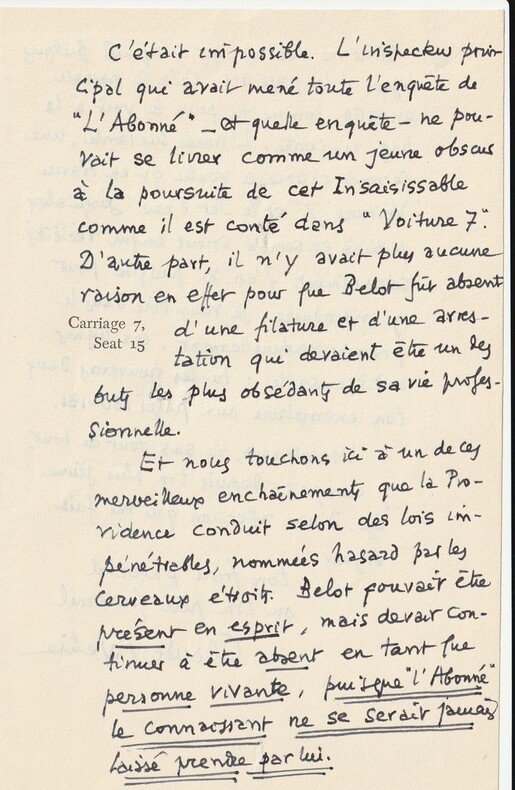 C'était impossible. L'inspecteur prin-
cipal qui avait mené toute l'enquête de
"L'Abonné" _ et quelle enquête _ ne pou-
vait se livrer comme un jeune obscur
à la poursuite de cet Insaisissable
comme il est conté dans "Voiture 7".
D'autre part, il n'y avait plus aucune
raison en effet pour que Belot fût absent
Carriage 7,
Seat 15
d'une filature et d'une arres-
tation qui devaient être un des
buts les plus obsédants de sa vie profes-
sionnelle.
Et nous touchons ici à un de ces
merveilleux enchaînements que la Pro-
vidence conduit selon des lois im-
pénétrables, nommées hasard par les
cerveaux etroits. Belot pouvait être
présent en esprit, mais devait con-
tinuer à être absent en tant que
personne vivante, puisque "l'Abonné"
le connaissant ne se serait jamais
laissé prendre par lui.